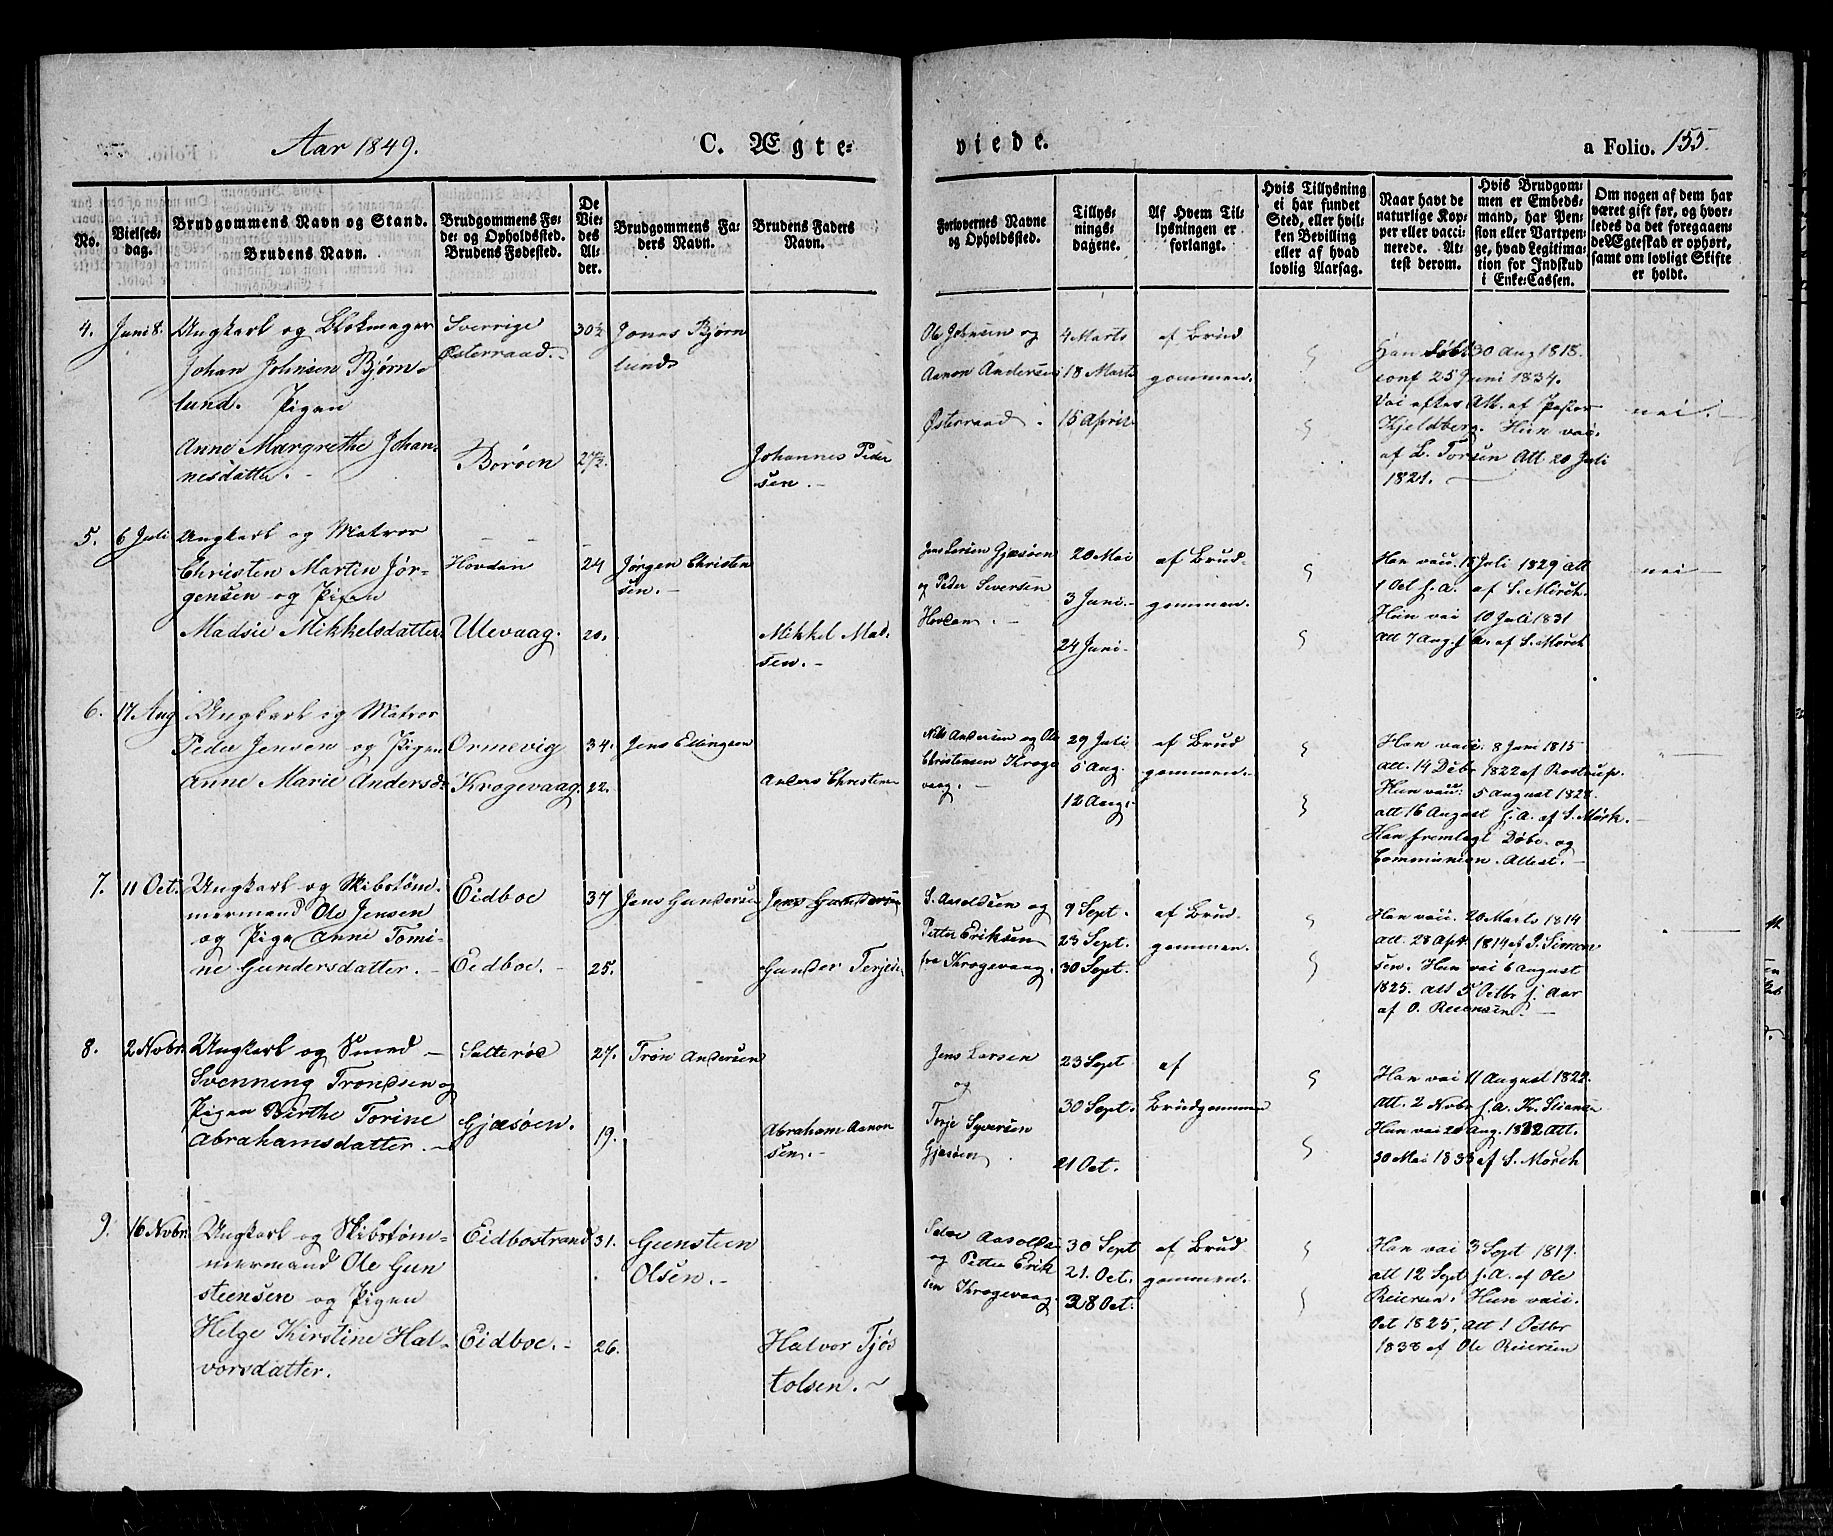 Aar 1849.
C. Ægte-
viede.
a Folio. 155.
No.
Vielses-
dag.
Brudgommens Navn og Stand.
Brudens Navn.
Brudgommens Fø-
de- og Opholdssted.
Brudens Fødested.
De
Vie-
des
Al-
der.
Brudgommens Fa-
ders Navn.
Brudens Faders
Navn.
Forlovernes Navne
og Opholdssted.
Tillys-
nings-
dagene.
Af Hvem Til-
lysningen er
forlangt.
Hvis Tillysning
ei har fundet
Sted, eller hvil-
ken Bevilling
eller af hvad
lovlig Aarsag.
Naar havt de
naturlige Kop-
per eller vacci-
nerede. At-
test derom.
Hvis Brudgom-
men er Embeds-
mand, har Pen-
sion eller Vartpen-
ge, hvad Legitima-
tion for Indskud
i Enke-Cassen.
Om nogen af dem har
været gift før, og hvor-
ledes da det foregaaen-
de Ægteskab er ophørt,
samt om lovligt Skifte
er holdt.
4. Juni 8. Ungkarl og Blokmager
Johan Johnsen Bjørn-
lund. Pigen
Anne Margrethe Johan-
nesdatter.
Sverrige
Østerraad.
Borøen
30½
27½.
Jonas Bjørn
lund
Johannes Peder
sen.
Ole Johnsen og
Aanon Andersen
Østerraad.
4 Marts
18 Marts
15 April
af Brud
gommen.
Han født 30 Aug 1818.
conf 25 Juni 1834.
Vai efter Att. af Pastor
Kjeldberg. Hun vai.
af B. Torsen Att 20 Juli
1821.
nei.
5. 6 Juli Ungkarl og Matros
Christen Martin Jør-
gensen og Pigen
Madsie Mikkelsdatter
Hovdan
Ulevaag.
24
20.
Jørgen Christen
sen.
Mikkel Mad-
sen.
Jens Larsen Gjæsøen
og Peder Siversen
20 Mai
3 Juni
24 Juni
af Brud-
gommen.
Han vaii. 18 Juli 1829 att
1 Oct s.a. af S. Mørch.
Hun vai 10 Juli 1831
att 7 Aug. s.a. af S. Mørch
nei
6. 17 Aug Ungkarl og Matros
Peder Jensen og Pigen
Anne Marie Andersd
Ormevig
Krogevaag.
34.
22.
Jens Ellingsen
Anders Christens
Nils Andersen og Ole
Christensen Kroge
vaag.
29 Juli
5 Aug.
12 Aug.
af Brud
gommen.
Han vaii. 8 Juni 1815
att. 14 Debr 1822 af Rostrup.
Hun vaii: 5 August 1828.
att 16 August s.a. af S. Mørk.
Han fremlagt Døbe- og
Communion. Attest.
7. 11 Oct. Ungkarl og Skibstøm-
mermand Ole Jensen
og Pige Anne Tomi-
ne Gundersdatter.
Eidboe
Eidboe.
37
25.
Jens Gundersen
Jens Gundersen
Gunder Terjes
S. Aasoldsen og
Petter Eriksen
fra Krogevaag.
9 Sept.
23 Sept.
30 Sept.
af Brud-
gommen.
Han vaii. 20 Marts 1814
att. 28 Apr. 1814 af I. Simon
sen. Hun vai 6 August
1825. att 5 Octbr s. Aar
af O. Reiersen.
8. 2 Novbr. Ungkarl og Smed
Svenning Trondsen og
Pigen Birthe Torine
Abrahamsdatter.
Salterøe
Gjæsøen.
27.
19.
Tron Andersen
Abraham Aanon
sen.
Jens Larsen
og
Terje Syversen
Gjæsøen
23 Sept
30 Sept.
21 Oct.
af
Brudgommen
Han vai 11 August 1822.
att. 2 Novbr s.a. K. Stiansen
Hun vai 20 Aug. 1832 att.
30 Mai 1833 af S. Mørch
9. 16 Novbr. Ungkarl og Skibstøm-
mermand Ole Gun
steensen og Pigen
Helge Kirstine Hal-
vorsdatter.
Eidbostrand
Eidboe.
31.
26.
Gunsteen
Olsen.
Halvor Tjøs
tolsen.
Peder Aasolds
og Petter Erik
sen Krogevaag
30 Sept
21. Oct.
28 Oct.
af Brud
gommen.
Han vai 3 Sept 1819.
att 12 Sept s.a. af Ole
Reiersen. Hun vaii.
Oct 1825, att 1 Octbr
1838 af Ole Reiersen